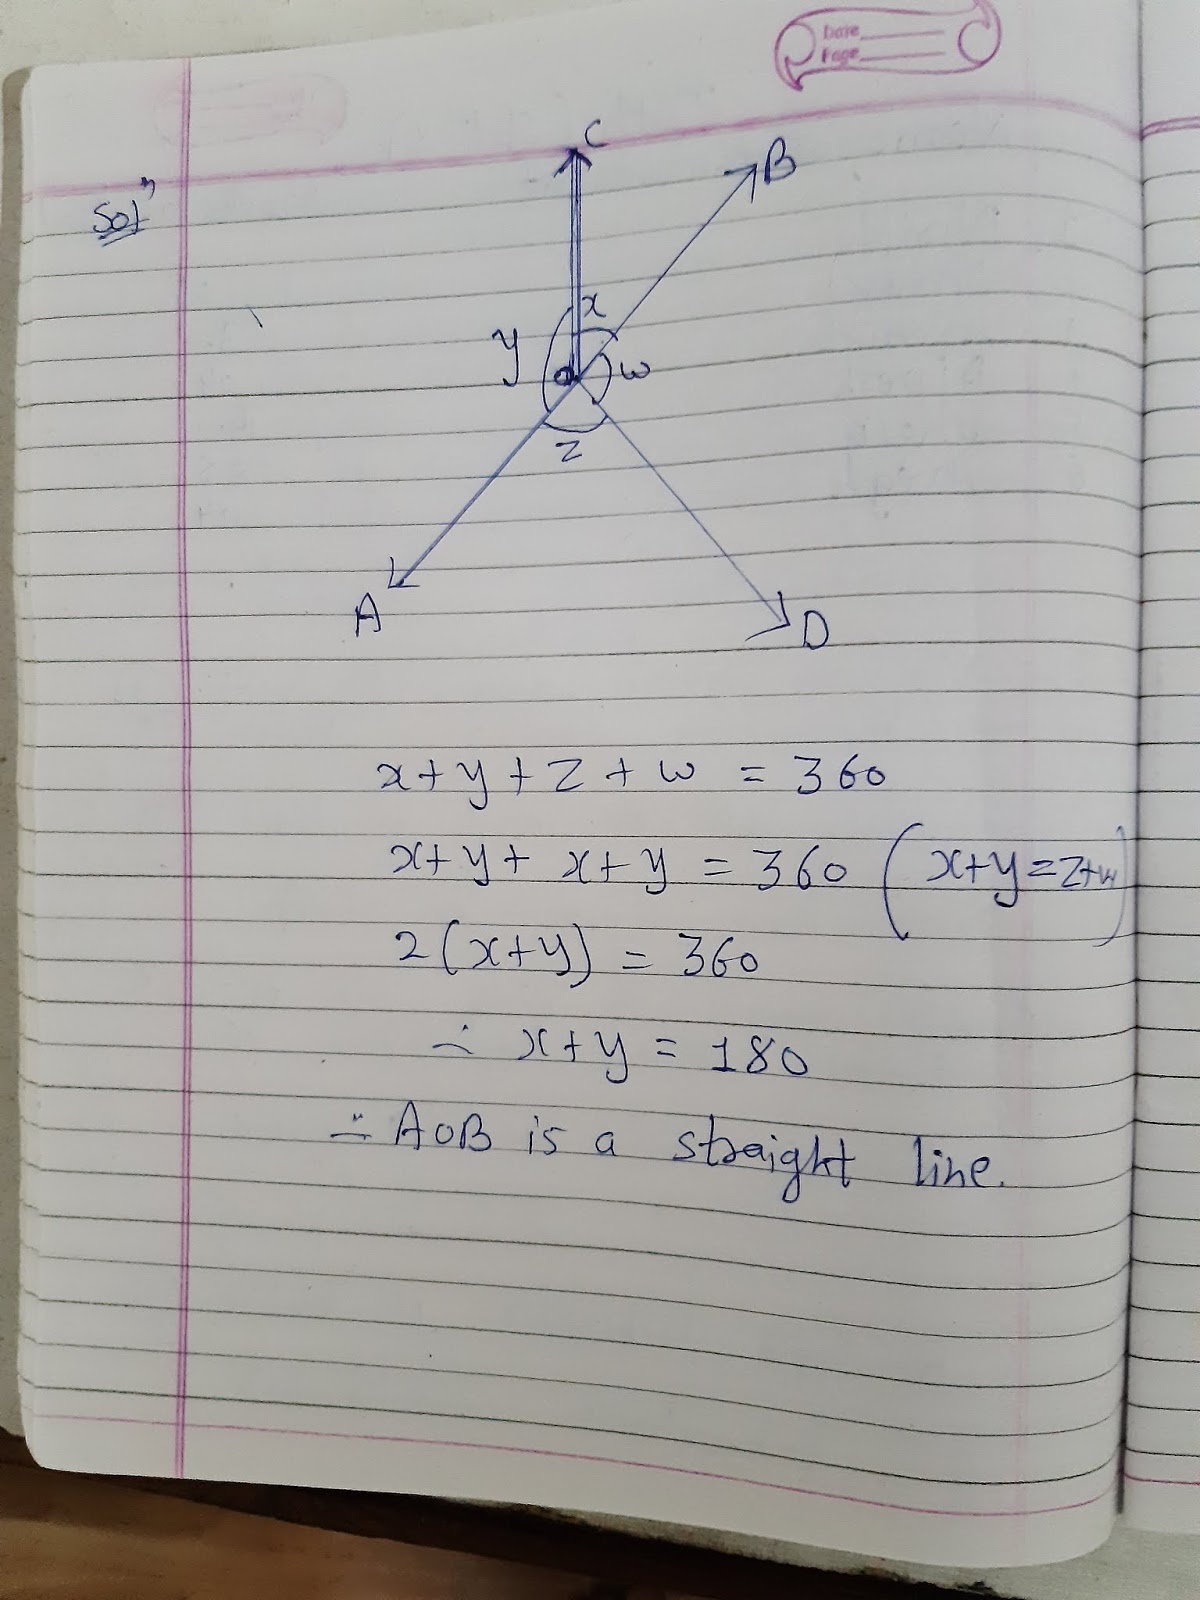 Date
Page
Solⁿ
C
B
x
y
O
w
z
A
D
x+y+z+w = 360
x+y+ x+y = 360 (x+y=z+w)
2(x+y) = 360
∴ x+y = 180
∴ AOB is a straight line.